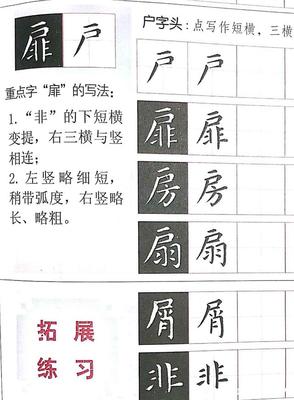 扉 户
重点字“扉”的写法：
1. “非”的下短横
变提，右三横与竖
相连；
2. 左竖略细短，
稍带弧度，右竖略
长、略粗。
拓展
练习
户字头：点写作短横，三横
户 户
扉 扉
房 房
扇 扇
屑 屑
非 非